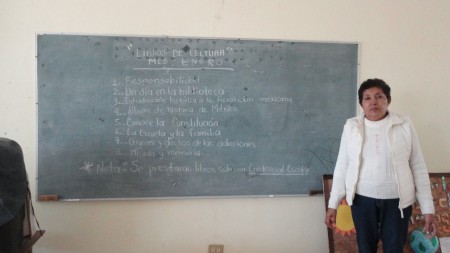 "LIBROS DE LECTURA"
MES ENERO
1- Responsabilidad
2- Un día en la biblioteca
3- Introducción histórica a la Revolución mexicana
4- Album de historia de México
5- Conoce la Constitución
6- La Escuela y la familia
7- Causas y efectos de las adicciones
8- y memoria
* Nota: Se prestarán libros solo con Credencial Escolar